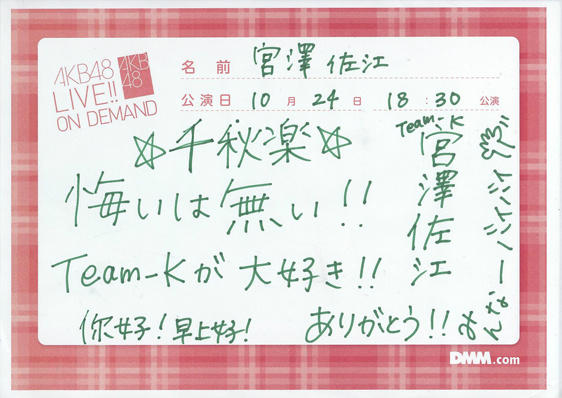 AKB48
LIVE!!
ON DEMAND
AKB
48
名前 宮澤 佐江
公演日 10 月 24 日 18 : 30 公演
☆千秋楽☆
悔いは無い!!
Team-Kが大好き!!
你好!早上好!
ありがとう!!
Team-K
宮澤佐江
みんなーバイバイ
DMM.com